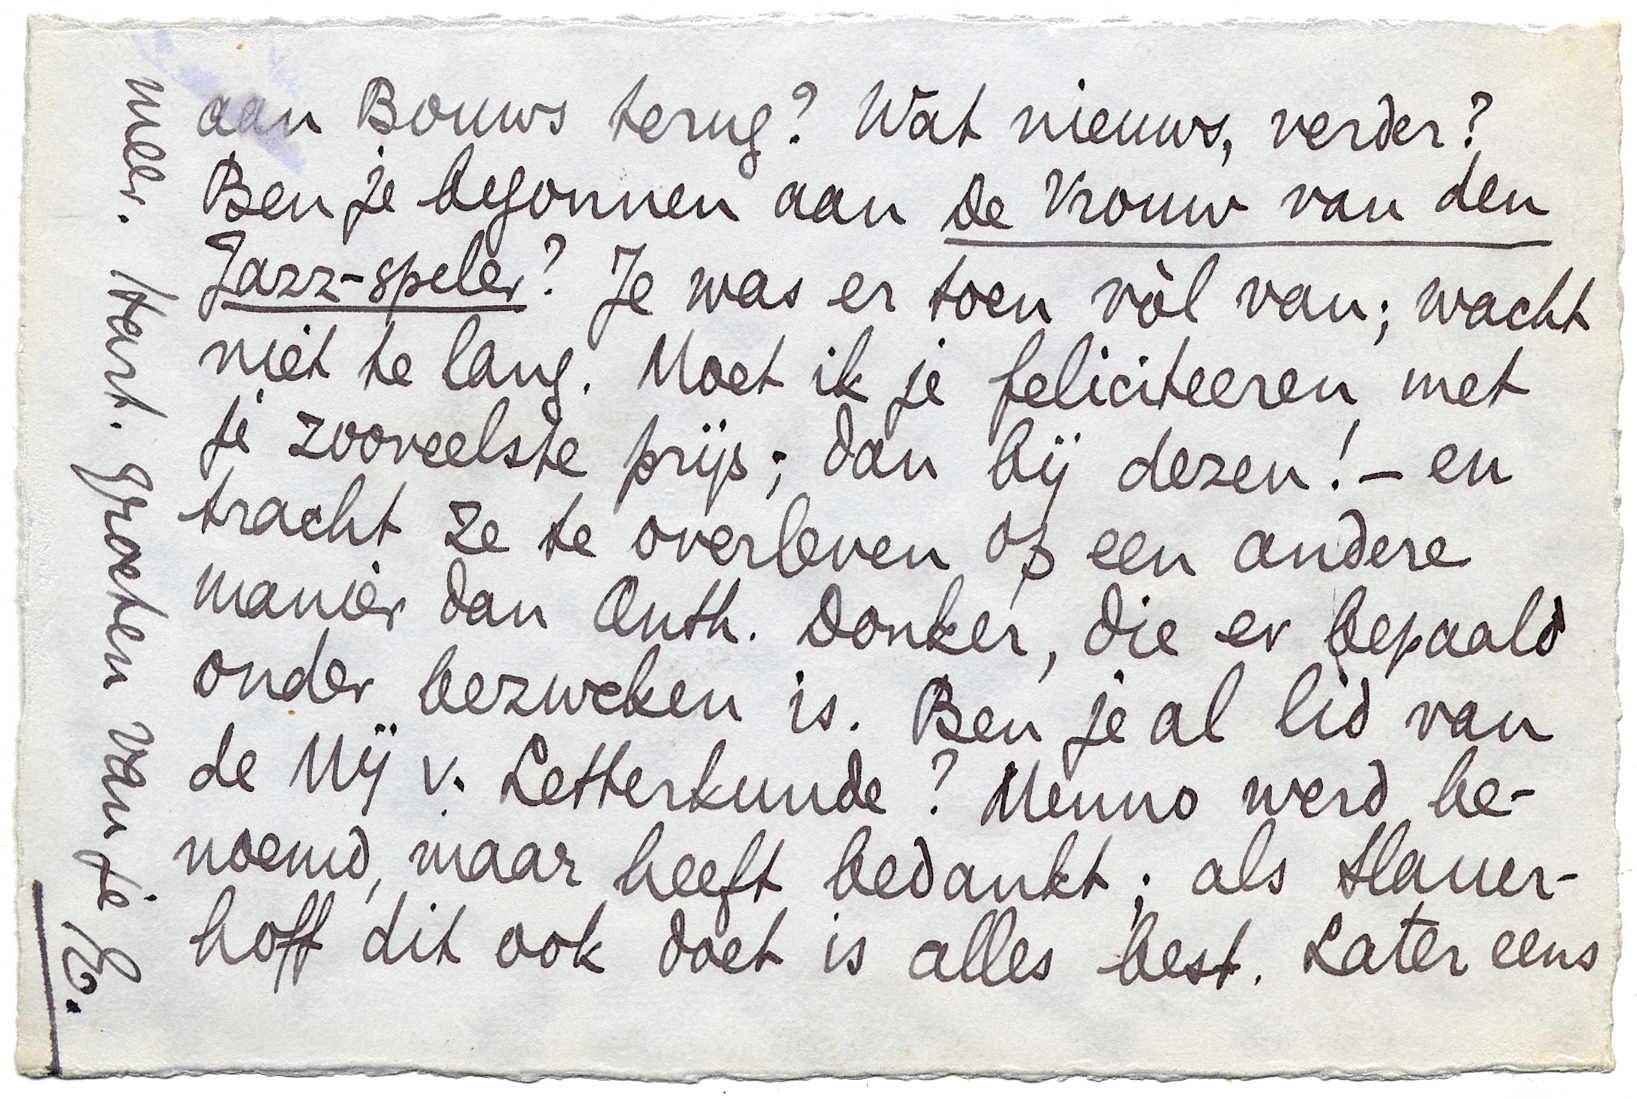 aan Bouws terug? Wat nieuws, verder?
Ben je begonnen aan de Vrouw van den
Jazz-speler? Je was er toen vòl van; wacht
niet te lang. Moet ik je feliciteeren met
je zooveelste prijs; dan bij dezen! – en
tracht ze te overleven op een andere
manier dan Anth. Donker, die er bepaald
onder bezweken is. Ben je al lid van
de Mij v. Letterkunde? Menno werd be-
noemd, maar heeft bedankt; als Slauer-
hoff dit ook doet is alles best. Later eens
meer. Hart. groeten van je E.